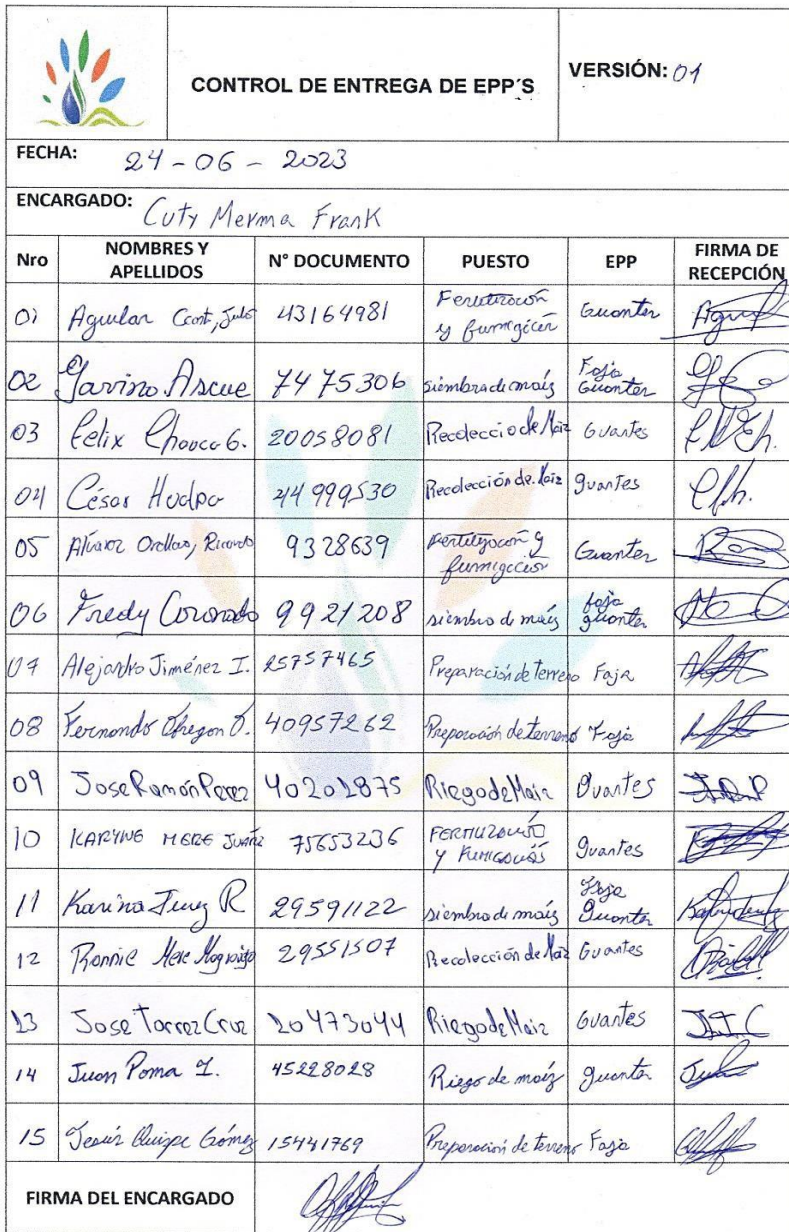 CONTROL DE ENTREGA DE EPP´S
VERSIÓN: 01
FECHA: 24-06-2023
ENCARGADO: Cuty Merma Frank
Nro NOMBRES Y APELLIDOS N° DOCUMENTO PUESTO EPP FIRMA DE RECEPCIÓN
01 Aguilar Ccont, Julo 43164981 Fertilización y fumigación Guantes
02 Garino Ascue 7475306 siembra de maíz Faja Guantes
03 Felix Chocca G. 20058081 Recolección de Maiz Guantes
04 César Huapa 44999530 Recolección de Maiz guantes
05 Alvarez Orellao, Ricardo 9328639 Fertilización y fumigación Guantes
06 Fredy Coronado 9921208 siembra de maíz faja guantes
07 Alejandro Jiménez I. 25757465 Preparación de terreno Faja
08 Fernando Obregon O. 40957262 Preparación de terreno Faja
09 Jose Ramón Perez 40201875 Riego de Maiz Guantes
10 KARYNE MERE Juárez 75653236 FERTILIZACIÓN Y FUMIGACIÓN guantes
11 Karina Jung R 29591122 siembra de maíz Faja Guantes
12 Ronnie Mere 29551507 Recolección de Maiz Guantes
13 Jose Torrez Cruz 20473044 Riego de Maiz Guantes
14 Juan Poma I. 45228028 Riego de maíz guantes
15 Jesús Quispe Gómez 15441769 Preparación de terreno Faja
FIRMA DEL ENCARGADO